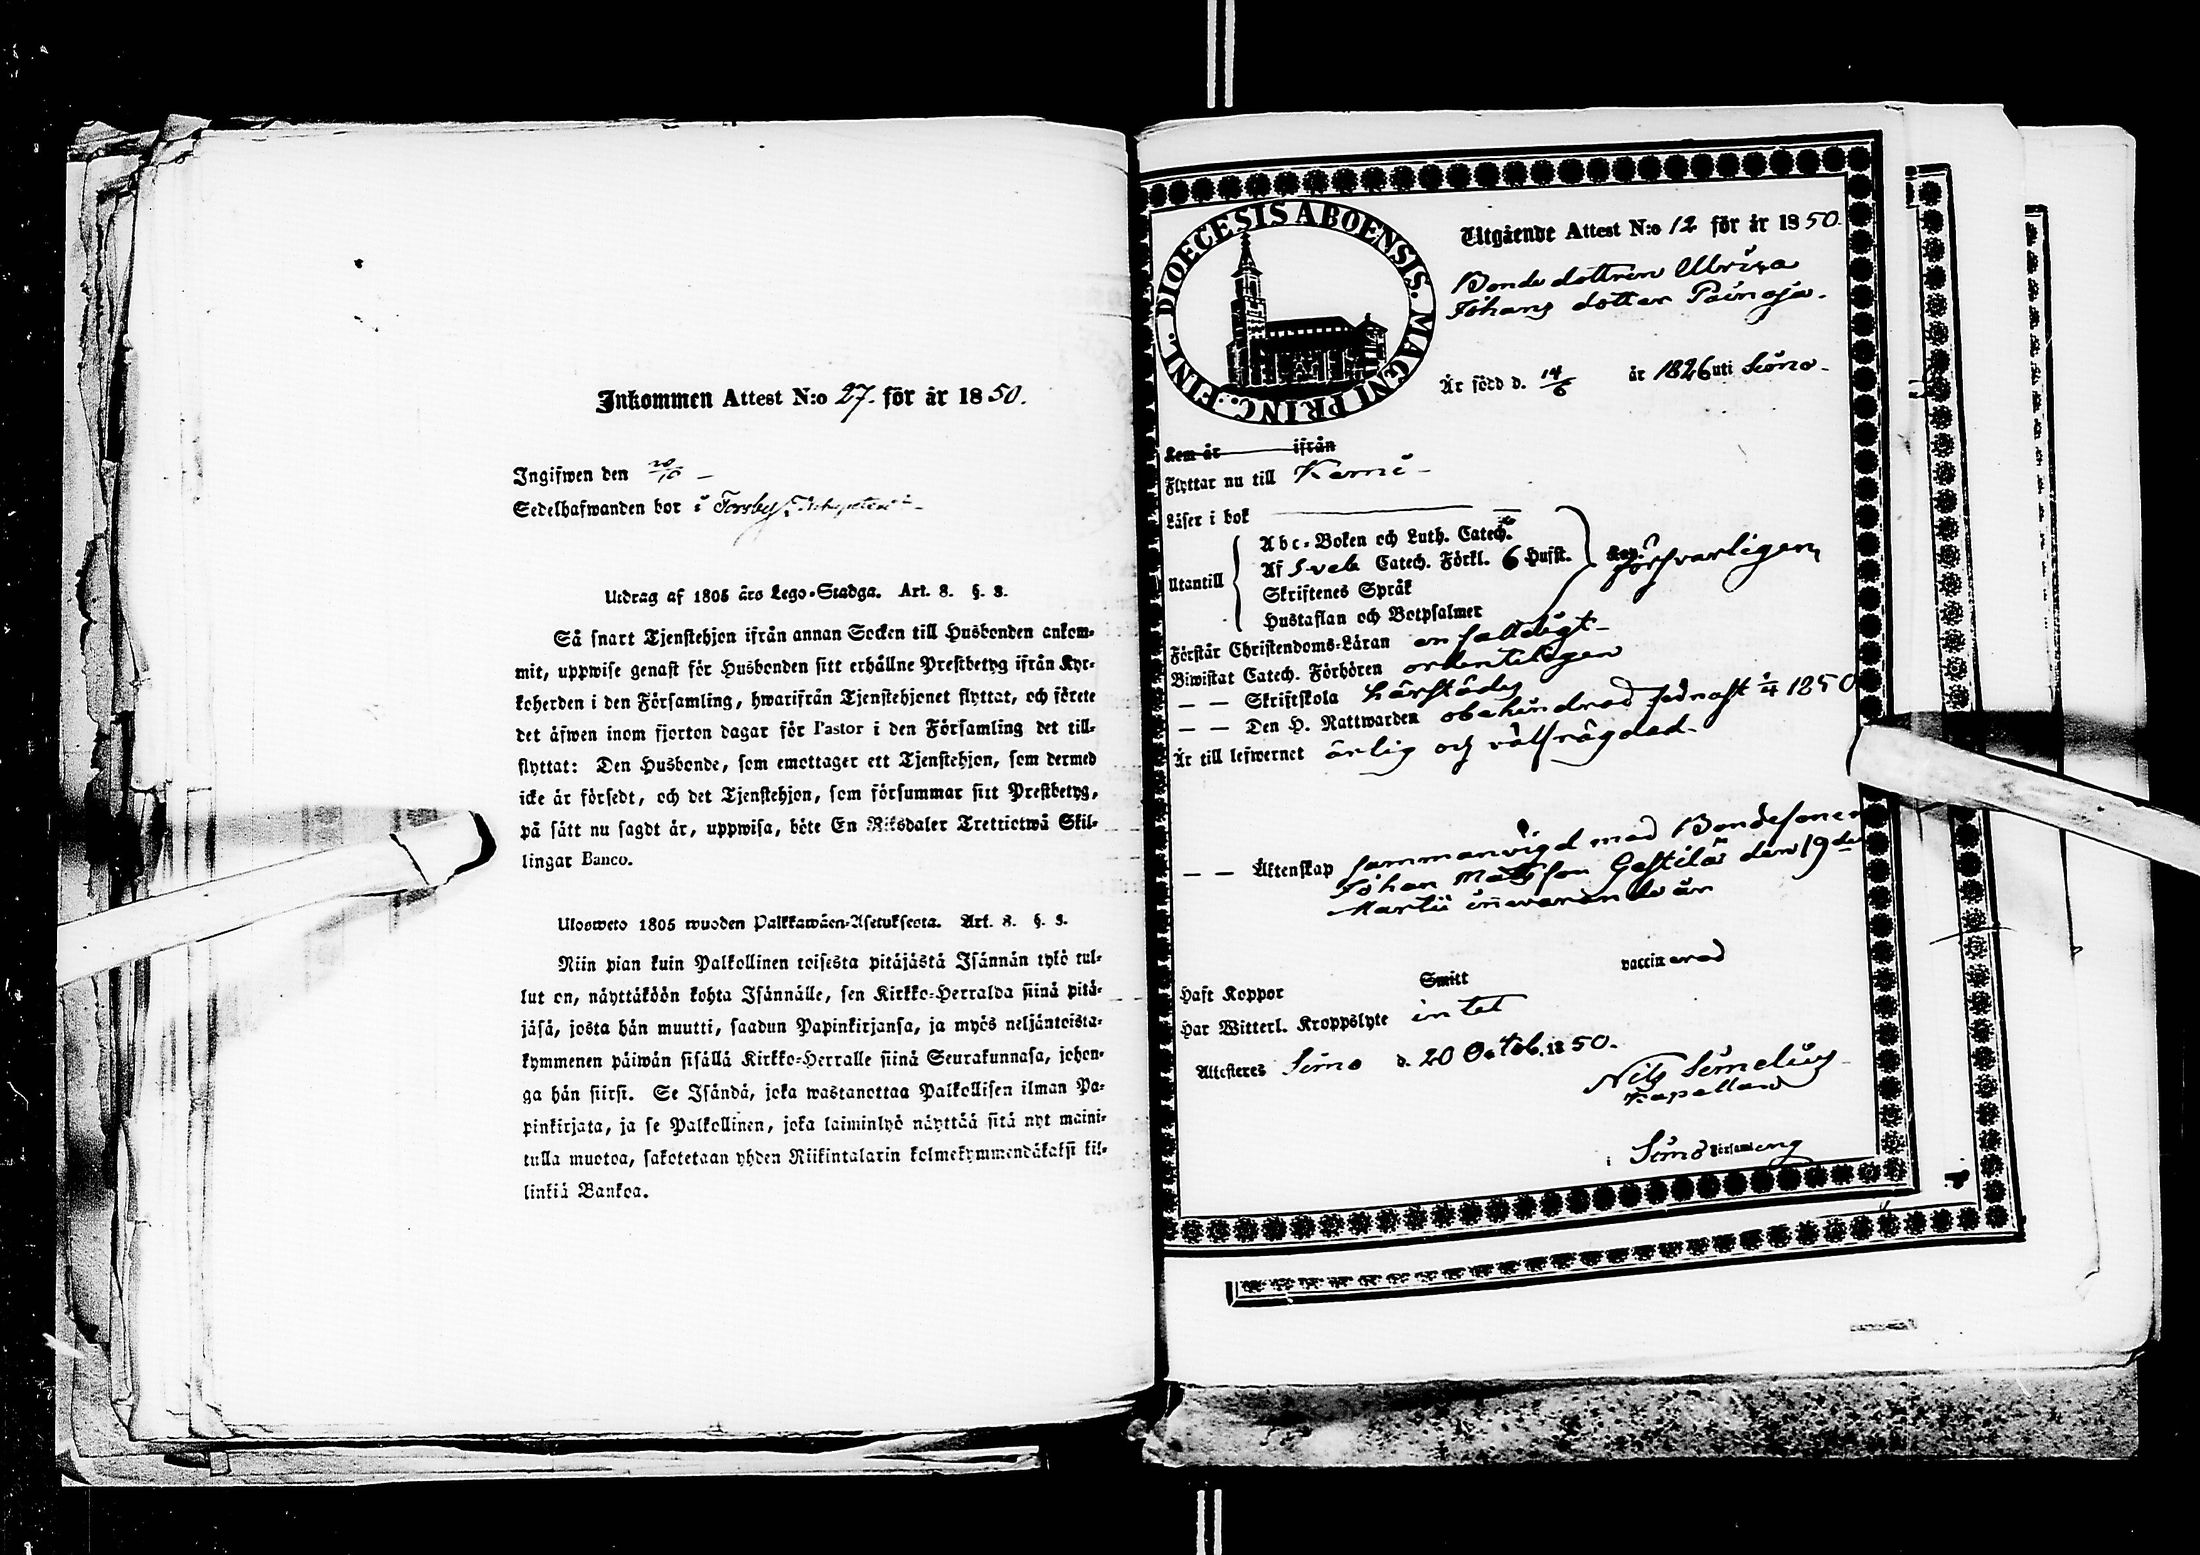 Inkommen Attest N:o 27. för år 1850.
Ingifwen den 20/10 –
Sedelhafwanden bor i Forsby,
Utdrag af 1805 års Lego-Stadga. Art. 8. §. 3.
Så snart Tjenstehjon ifrån annan Socken till Husbonden ankom-
mit, uppwise genast för Husbonden sitt erhållne Prestbetyg ifrån Kyr-
koherden i den Församling, hwarifrån Tjenstehjonet flyttat, och förete
det äfwen inom fjorton dagar för Pastor i den Församling det till-
flyttat: Den Husbonde, som emottager ett Tjenstehjon, som dermed
icke är försedt, och det Tjenstehjon, som försummar sitt Prestbetyg,
på sätt nu sagdt är, uppwisa, böte En Riksdaler Trettiotwå Skil-
lingar Banco.
Ulosweto 1805 wuoden Palkkawäen-Asetuksesta. Art. 8. §. 3.
Niin pian kuin Palkollinen toisesta pitäjästä Isännän tykö tul-
lut on, näyttäköön kohta Isännälle, sen Kirkko-Herralda siinä pitä-
jäsä, josta hän muutti, saadun Papinkirjansa, ja myös neljäntoista-
kymmenen päiwän sisällä Kirkko-Herralle siinä Seurakunnasa, johon-
ga hän siirsi. Se Isändä, joka wastanottaa Palkollisen ilman Pa-
pinkirjata, ja se Palkollinen, joka laiminlyö näyttää sitä nyt maini-
tulla muotoa, sakotetaan yhden Riikintalarin kolmekymmendäkaksi kil-
linkiä Bankoa.
DIOECESIS ABOENSIS. MAGNI PRINC. FINL.
Utgående Attest N:o 12 för år 1850.
Bonde dottren Ulrica
Johans dotter Painaja.
Är född d. 14/6 år 1826 uti Simo –
Kem år ifrån
Flyttar nu till Kemi –
Läser i bok
Utantill
Abc-Boken och Luth. Catech.
Af Sveb Catech. Förkl. 6 Hufst. Kap.
försvarligen
Skriftenes Språk
Hustaflan och Botpsalmer
Förstår Christendoms-Läran enfalldigt –
Biwistat Catech. Förhören ordenteligen
– – Skriftskola härstädes
– – Den H. Nattwarden obehindrad sednast 1/4 1850
Är till lefwernet ärlig och välfrägdad –
– – Äktenskap sammanvigd med Bondesonen
Johan Matsson Gestilä den 19de
Martii innevarande år
Haft Koppor Smitt vaccinerad
Har Witterl. Kroppslyte intet
Attesteres Simo d. 20 Octob. 1850.
Nils Simelius
Kapellan
i Simo Församling